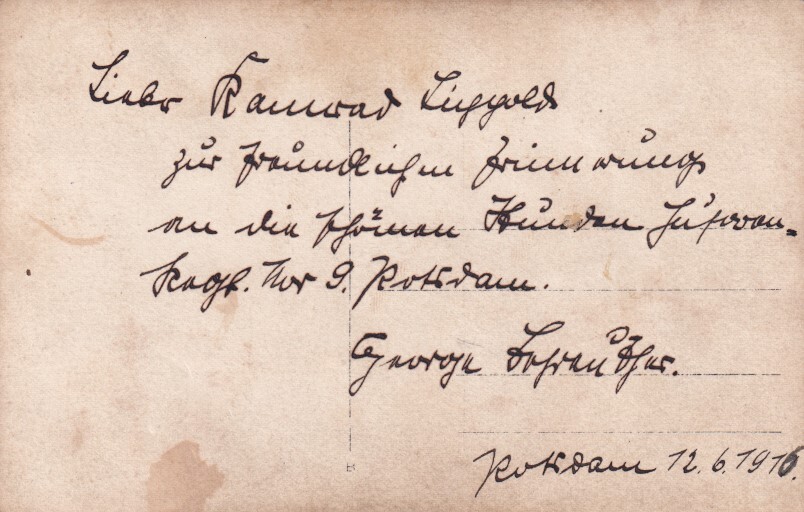 Lieber Kamrad Lippold
zur freundlichen Erinnerung
an die schönen Stunden Husaren-
Regt. Nor 9. Potsdam.
George
Potsdam 12.6.1916.